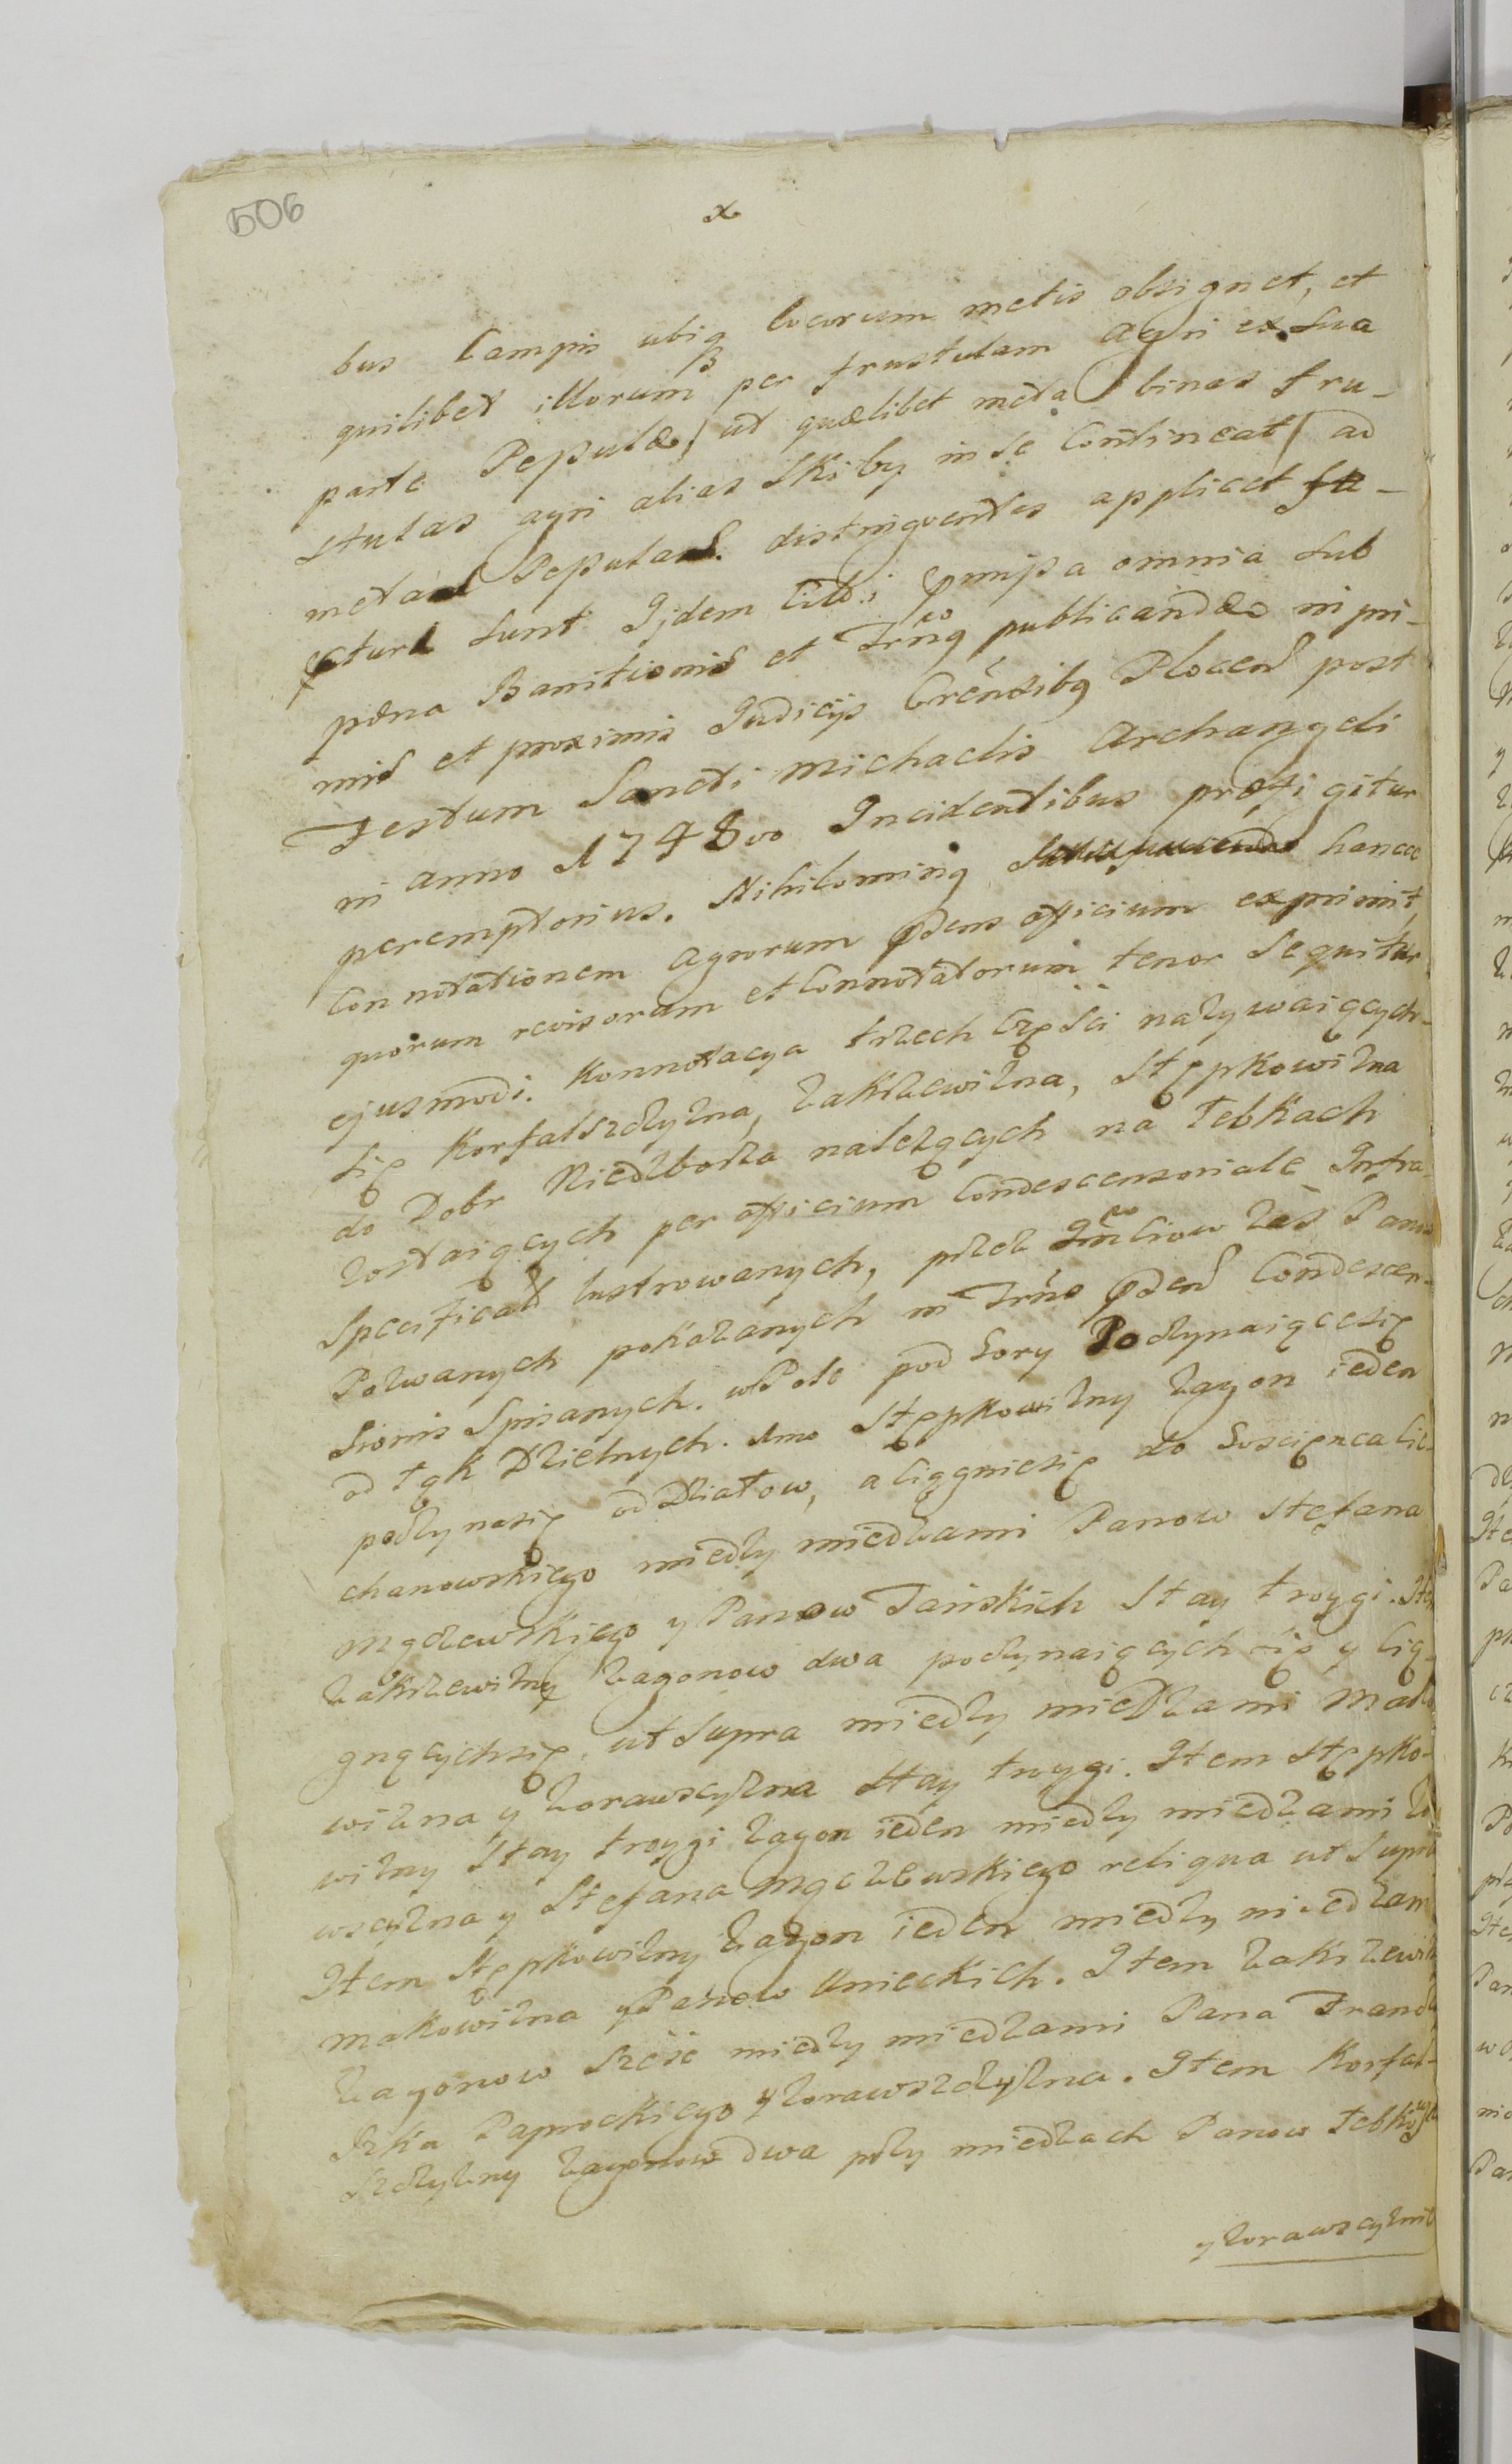 506
x
bus Campis ubiq locorum metis obsignet, et
quilibet illorum per frustulam agri ex sua
parte Pessulæ, ut quælibet meta binas fru-
stulas agri alias Skiby in se Contineat ad
metas distingventes applicet
sunt Ijdem omnia sub
pæna Banitionis et Trnq publicandæ in pri-
mis et proximis Judicijs Crensibq Plocens post
Festum Sancti Michaelis Archangeli
in anno 1748vo Incidentibus præfigitur
peremptorius. Nihilominq hance
Connotationem agrorum pdens officium exprimit,
quorum revisorum et Connotatorum tenor sequitur
ejusmodi. Konnotacya trzech Częsci nazywaiących
się Korfalszczyzna, Zakrzewizna, Stępkowizna
do Dobr Niedzborza nalezących na Łebkach
zostaiących per officium Condescensoriale Infra
Specificat lustrowanych, przez zaś Panow
Pozwanych pokazanych in Trno pdens Condescen-
sionis Spisanych. w Pole pod Gory Poczynaiącesię
od łąk Dzielnych. 1mo Stępkowizny Zagon ieden
poczynasię od Działow, a ciągniesię do Goscienca Cie-
chanowskiego miedzy miedzami Panow Stefana
Mączewskiego y Panow Tańskich Stay troygi. Item
Zakrzewizny Zagonow dwa poczynaiących się y cią-
gnących się, ut supra miedzy miedzami
wizna y Zorawscyzna Stay troygi. Item Stępko-
wizny Stay troygi Zagon ieden miedzy miedzami Zo
wscyzna y Stefana Mączewskiego reliqua ut supra
Item Stępkowizny Zagon ieden miedzy miedzami
Makowizna y Panow Unieckich. Item Zakrzewizn
Zagonow Szesc miedzy miedzami Pana Franci
szka Paprockiego y Zorawszczyzna. Item Korfal-
szczyzny Zagonow dwa przy miedzach Panow
y Zorawscyzni